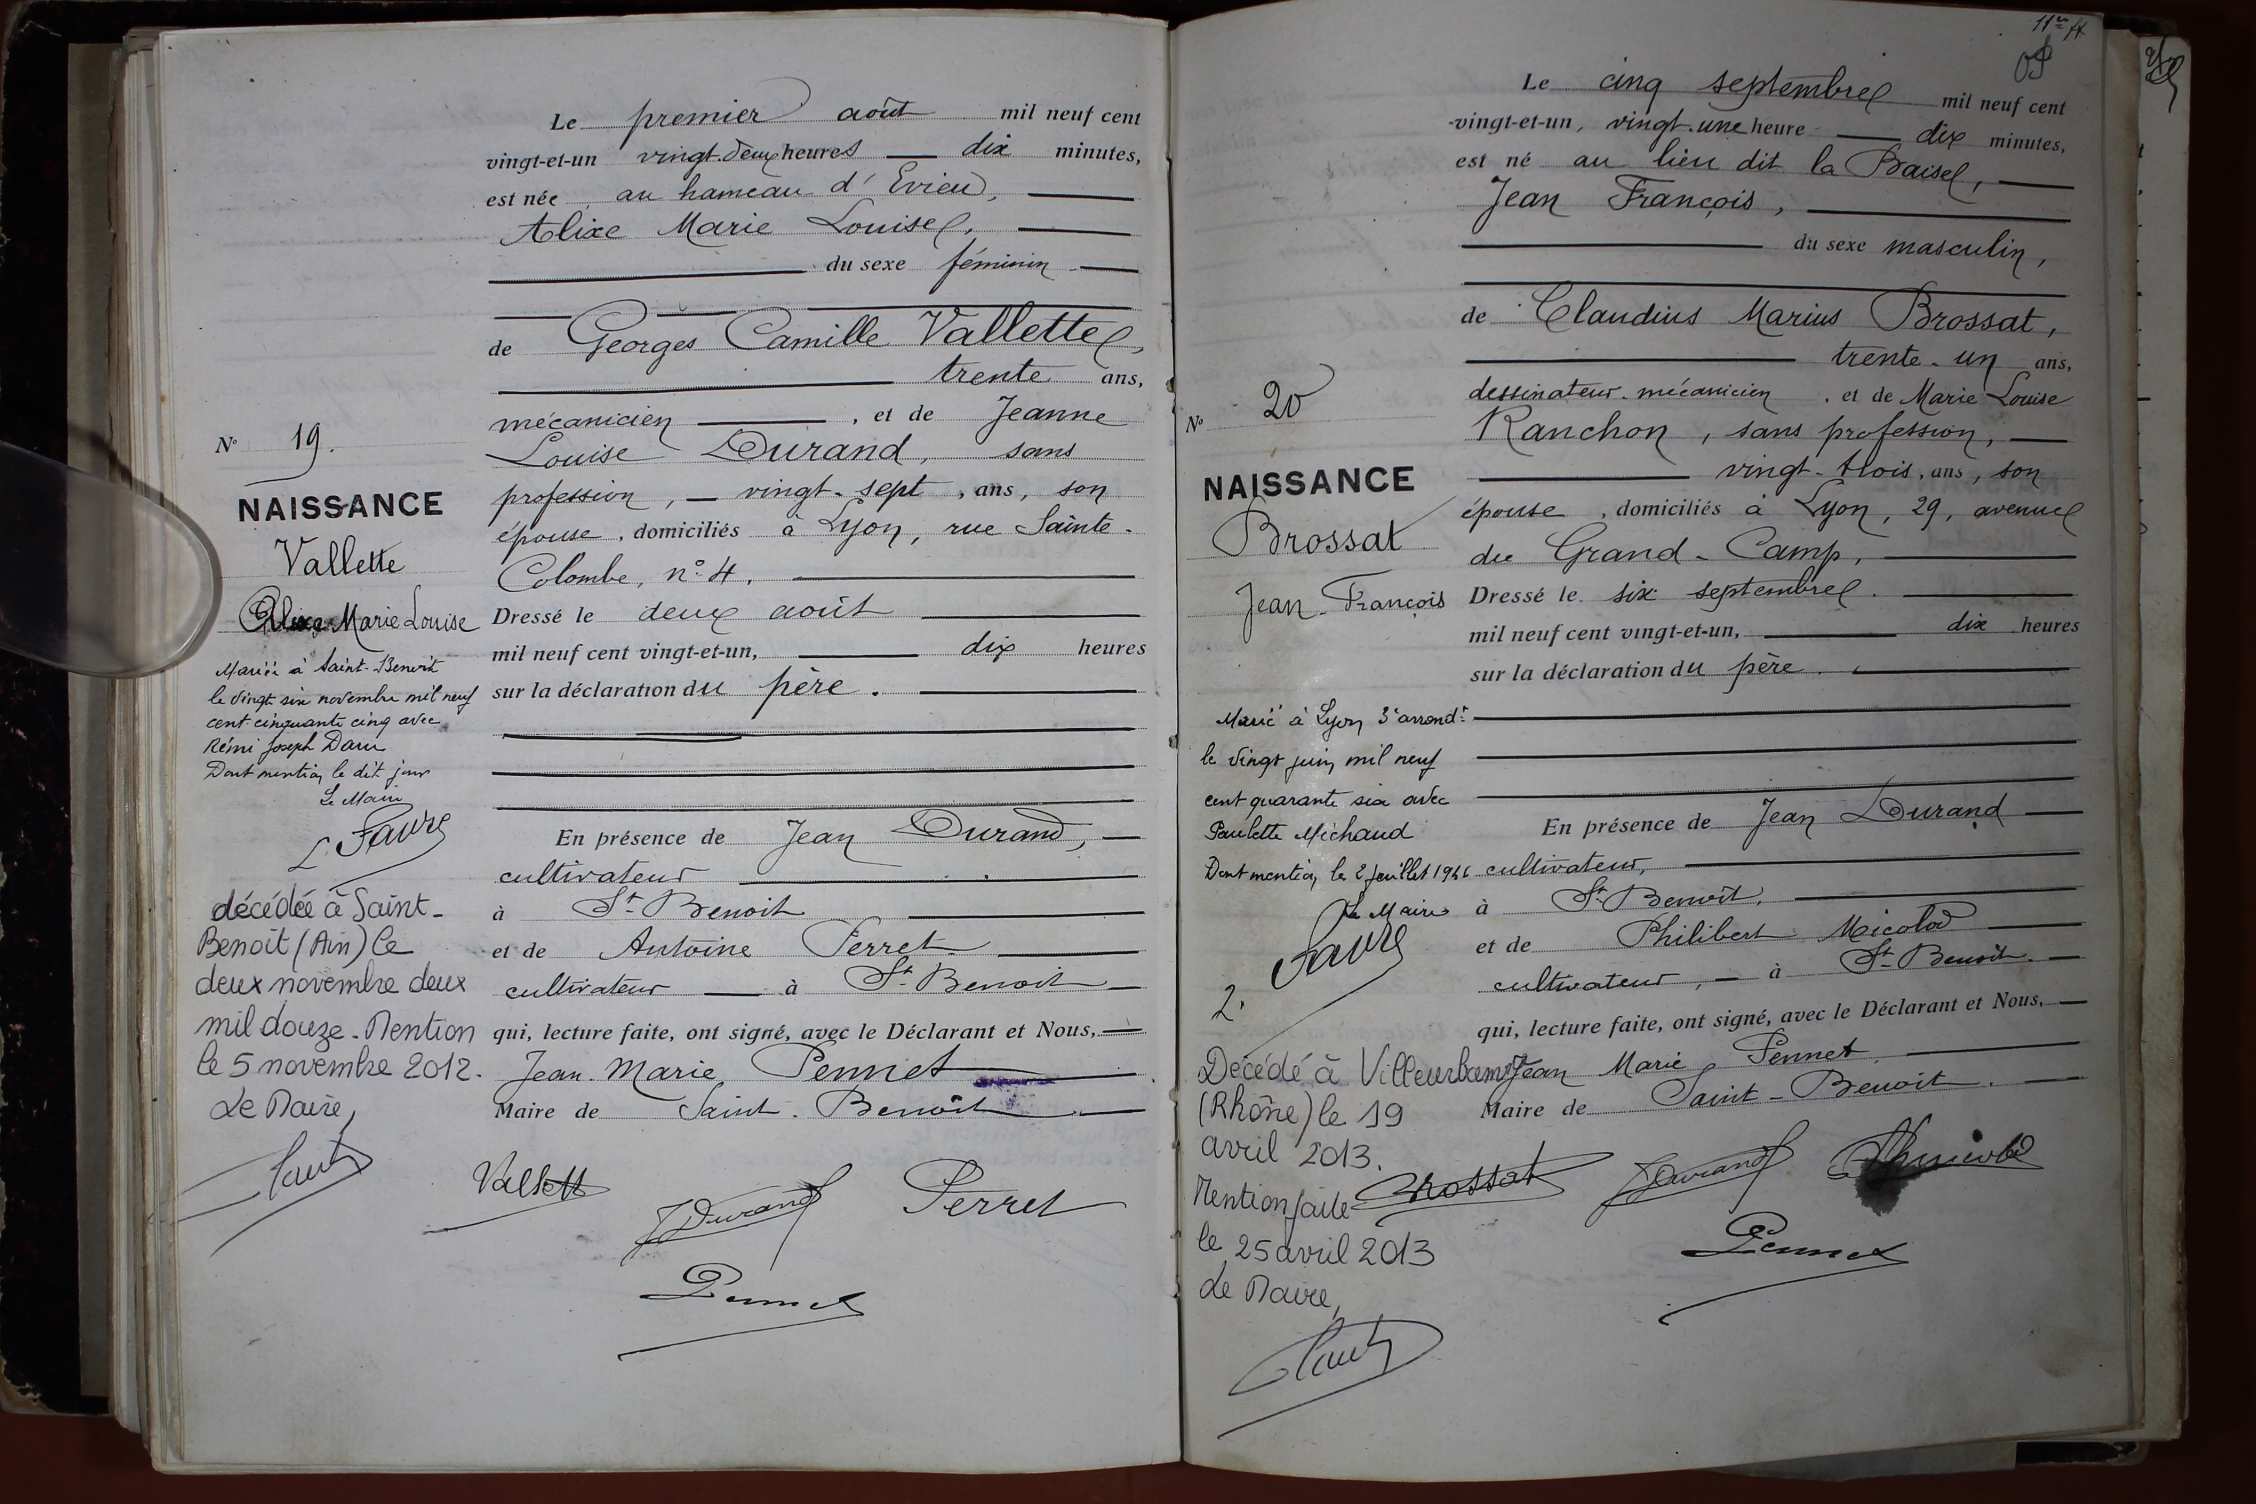 Le premier août mil neuf cent
vingt-et-un vingt-deux heures dix minutes,
est née au hameau d'Evieu,
Alixe Marie Louise,
du sexe féminin
de Georges Camille Vallette,
trente ans,
mécanicien, et de Jeanne
Louise Durand, sans
profession, vingt-sept, ans, son
épouse, domiciliés à Lyon, rue Sainte-
Colombe, n° 4.
Dressé le deux août
mil neuf cent vingt-et-un, dix heures
sur la déclaration du père.
En présence de Jean Durand,
cultivateur
à St-Benoit
et de Antoine Perret
cultivateur à St-Benoit
qui, lecture faite, ont signé, avec le Déclarant et Nous,
Jean-Marie Pennet
Maire de Saint-Benoît
N° 19.
NAISSANCE
Vallette
Alixe Marie Louise
Mariée à Saint-Benoit
le vingt six novembre mil neuf
cent cinquante cinq avec
Rémi Joseph Daru
Dont mention le dit jour
Le Maire
L. Favre
décédée à Saint-
Benoît (Ain) le
deux novembre deux
mil douze. Mention
le 5 novembre 2012.
Le Maire,
Vallette
J Durand
Perret
Pennet
11e ff
Le cinq septembre mil neuf cent
vingt-et-un, vingt-une heure dix minutes,
est né au lieu dit la Baise,
Jean François,
du sexe masculin,
de Claudius Marius Brossat,
trente-un ans,
dessinateur-mécanicien, et de Marie Louise
Ranchon, sans profession,
vingt-trois, ans, son
épouse, domiciliés à Lyon, 29, avenue
du Grand-Camp,
Dressé le six septembre.
mil neuf cent vingt-et-un, dix heures
sur la déclaration du père.
En présence de Jean Durand
cultivateur,
à St-Benoît,
et de Philibert Micolod
cultivateur, à St-Benoît.
qui, lecture faite, ont signé, avec le Déclarant et Nous,
Jean Marie Pennet
Maire de Saint-Benoit.
N° 20
NAISSANCE
Brossat
Jean-François
Marié à Lyon 3e arrondt
le vingt juin mil neuf
cent quarante six avec
Paulette Michaud
Dont mention le 2 juillet 1946
Le Maire
Favre
2.
Décédé à Villeurbanne
(Rhône) le 19
avril 2013.
Mention faite
le 25 avril 2013
Le Maire,
Brossat
J Durand
Micolod
Pennet